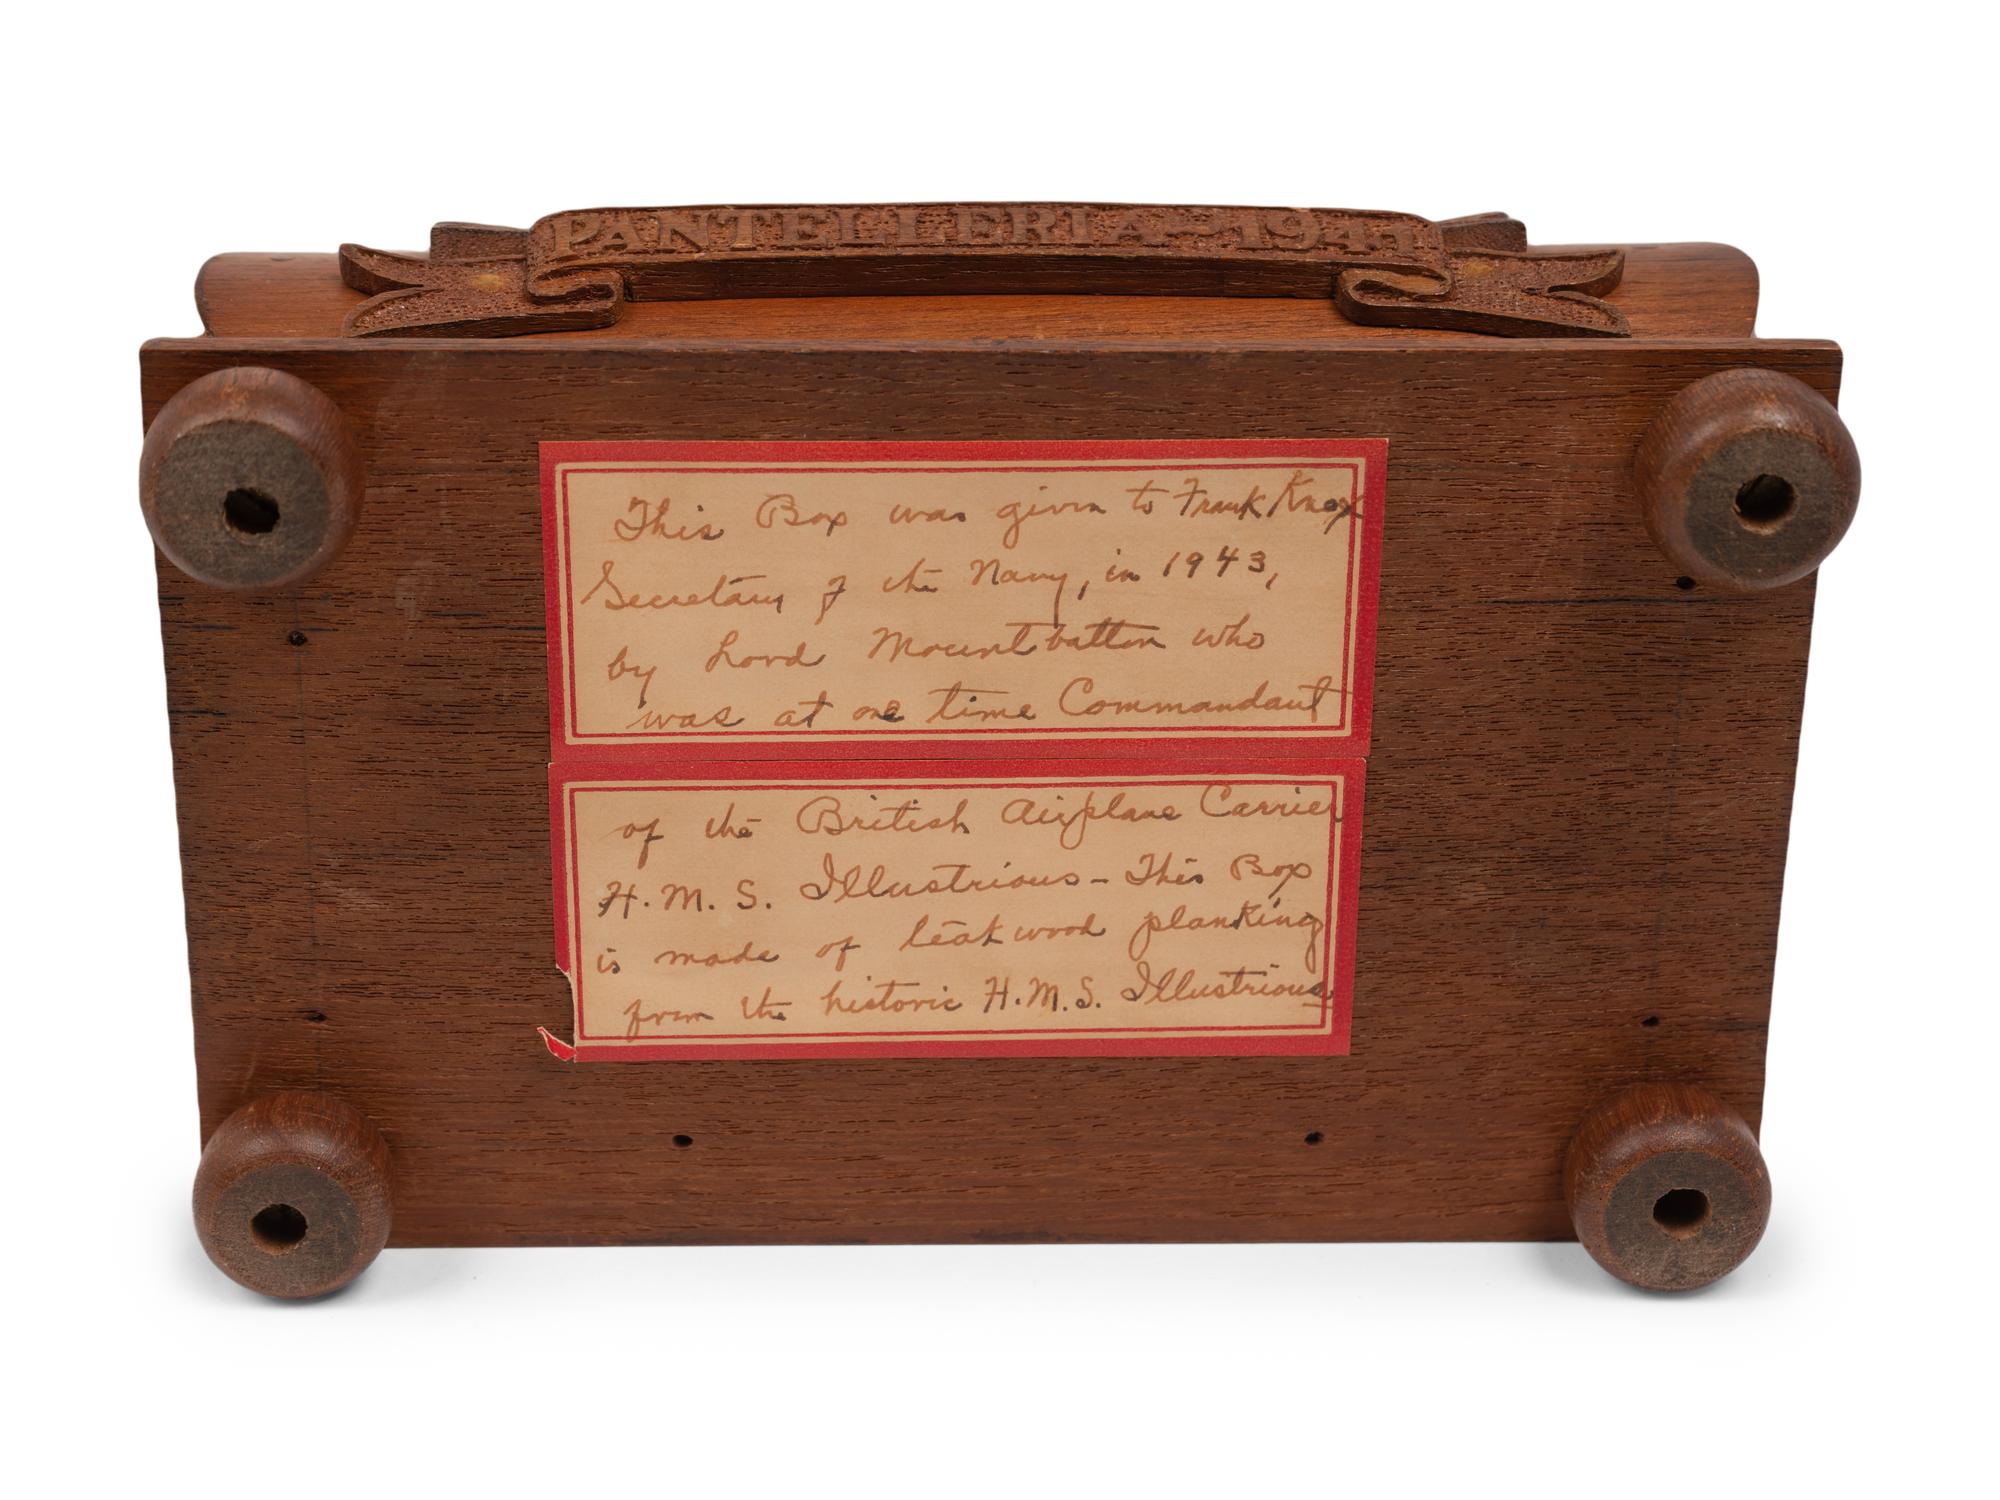 PANTELLERIA - 1941
This Box was given to Frank Knox
Secretary of the Navy, in 1943,
by Lord Mountbatten who
was at one time Commandant
of the British Airplane Carrier
H.M.S. Illustrious - This Box
is made of teakwood planking
from the historic H.M.S. Illustrious